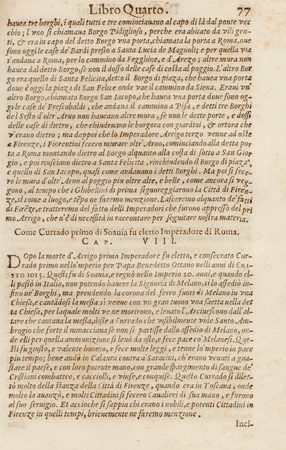 Libro Quarto. 77
hauea tre borghi, i quali tutti e tre cominciauano al capo di là dal ponte vec
chio; l'vno si chiamaua Borgo Pidiglioso, perche era abitato da vili gen-
ti, & era in capo del detto Borgo vna porta, chiamata la porta a Roma, oue
son oggi le case de' Bardi presso a Santa Lucia de Magnoli; e per quella via
s'andaua a Roma, per lo cammino da Fegghine, e d'Arezo; altre mura non
hauea dal detto Borgo, se non il dosso delle case di costa al poggio. L'altro Bor
go era quello di Santa Felicita, detto il Borgo di piaza, che hauea vna porta
doue è oggi la piaza di San Felice onde vae il cammino da Siena. Eraui vn'
altro Borgo, chiamato Borgo San Iacopo, che hauea vna porta doue sono og-
gi le case de' Frescobaldi, che andaua il cammino a Pisa, e detti tre Borghi
del Sesto d'oltr'Arno non haueano altre mura, se non le dette porte, e dossi
delle case di dietro, che chiudeuano le borgora con giardini, & ortora che
v'erano dentro; ma dapoi che lo Imperadore Arrigo terzo venne ad oste
a Firenze, i Fiorentini feciono murare oltr'Arno, cominciando alla detta por
ta a Roma montando dietro al Borgo alquanto alla costa di sotto a San Gior
gio, e poi riuscieno dietro a Santa Felicita, rinchiudendo il Borgo di piaza,
e quello di San Iacopo, quasi come andauano i detti Borghi. Ma poi si feco
ro le mura d'oltr'Arno al poggio piu oltre alte, e belle, come ancora se veg-
gono, al tempo che i Ghibellini di prima signoreggiarono la Città di Firen-
ze, si come a luogo, e tēpo ne faremo menzione. Lascerēno alquanto de' fatti
di Firēze, e tratteremo del fatto delli Imperadori che furono appresso del pri-
mo Arrigo, che n'è di necessità in raccontare per seguitare nostra materia.
Come Currado primo di Soauia fu eletto Imperadore di Roma.
CAP. VIII.
DOpo la morte d'Arrigo primo Imperadore fu eletto, e consecrato Cur-
rado primo nello'mperio per Papa Benedetto Ottauo nelli anni di CRI-
STO 1015. Questi fu di Soauia, e regnò nello Imperio 20. anni, e quando el-
li passò in Italia, non potendo hauere la Signoria di Melano, si lo assedio in-
sino ne' Borghi, ma prendendo la corona del ferro fuori di Melano in vna
Chiesa, e cantādosi la messa si venne con vn gran tuono vna saetta nella det
ta Chiesa, per laquale molti ve ne morirono, e leuato l'Arciuescouo dall'al-
tare che cantaua la messa, disse a Currado che visibilmente vide Santo Am-
brogio che forte il minacciaua se non si partisse dallo assedio di Melano, on-
de elli per quella ammonizione si leuò da oste, e fece pace co' Melanesi. Que-
sti fu giusto, e valente huomo, e fece molte leggi, e tenne lo'mperio in pace
piu tempo; bene andò in Calaura contra a Saracini, ch'erano venuti a gua-
stare il paese, e con loro pugnò, con grande spargimento di sangue de'
Cristiani combatteo, e cacciolli, e vinse, e conquise. Questo Currado si dilet
tò molto della stanza della Città di Firenze, quando era in Toscana, onde
molto la auanzò, e molti Cittadini si fecero Caualieri di sua mano, e furono
al suo seruigio. Et acciòche si sappia chi erano i nobili, e potenti Cittadini in
Firenze in quelli tempi, brieuemente ne faremo menzione.
Inci-